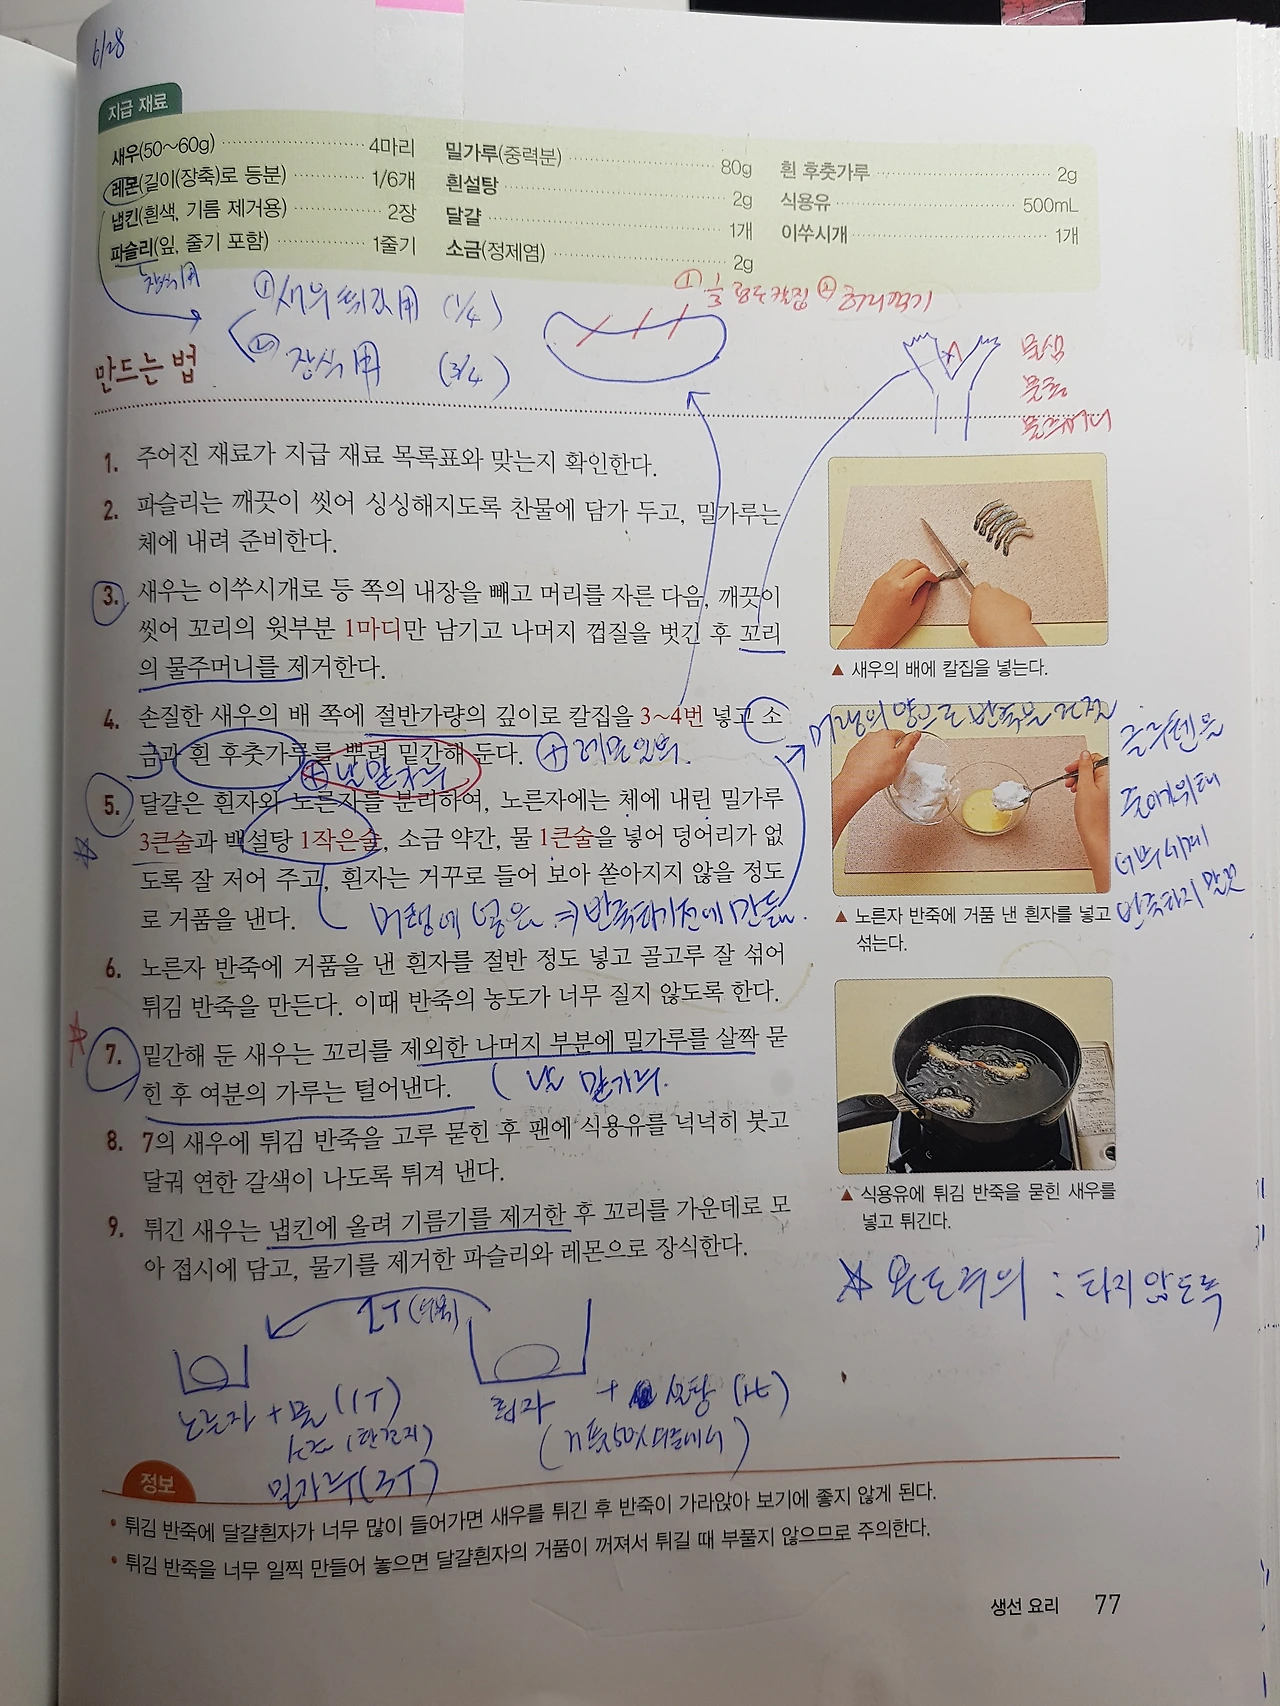 6/28
지급 재료
새우(50~60g) 4마리
레몬(길이(장축)로 등분) 1/6개
냅킨(흰색, 기름 제거용) 2장
파슬리(잎, 줄기 포함) 1줄기
밀가루(중력분) 80g
흰설탕 2g
달걀 1개
소금(정제염) 2g
흰 후춧가루 2g
식용유 500mL
이쑤시개 1개
장식用
① 새우 튀김用 (1/4)
② 장식用 (3/4)
① 1/3 정도 칼집 ②
만드는 법
1. 주어진 재료가 지급 재료 목록표와 맞는지 확인한다.
2. 파슬리는 깨끗이 씻어 싱싱해지도록 찬물에 담가 두고, 밀가루는
체에 내려 준비한다.
3. 새우는 이쑤시개로 등 쪽의 내장을 빼고 머리를 자른 다음, 깨끗이
씻어 꼬리의 윗부분 1마디만 남기고 나머지 껍질을 벗긴 후 꼬리
의 물주머니를 제거한다.
4. 손질한 새우의 배 쪽에 절반가량의 깊이로 칼집을 3~4번 넣고 소
금과 흰 후춧가루를 뿌려 밑간해 둔다. + 레몬
5. 달걀은 흰자와 노른자를 분리하여, 노른자에는 체에 내린 밀가루
3큰술과 백설탕 1작은술, 소금 약간, 물 1큰술을 넣어 덩어리가 없
도록 잘 저어 주고, 흰자는 거꾸로 들어 보아 쏟아지지 않을 정도
로 거품을 낸다.
머랭에 넣음 반죽하기전에 만듦.
6. 노른자 반죽에 거품을 낸 흰자를 절반 정도 넣고 골고루 잘 섞어
튀김 반죽을 만든다. 이때 반죽의 농도가 너무 질지 않도록 한다.
7. 밑간해 둔 새우는 꼬리를 제외한 나머지 부분에 밀가루를 살짝 묻
힌 후 여분의 가루는 털어낸다.
밀가루
8. 7의 새우에 튀김 반죽을 고루 묻힌 후 팬에 식용유를 넉넉히 붓고
달궈 연한 갈색이 나도록 튀겨 낸다.
9. 튀긴 새우는 냅킨에 올려 기름기를 제거한 후 꼬리를 가운데로 모
아 접시에 담고, 물기를 제거한 파슬리와 레몬으로 장식한다.
물주머니
▲ 새우의 배에 칼집을 넣는다.
머랭의 양으로 반죽을
글루텐
너무 세게
반죽하지 말것
▲ 노른자 반죽에 거품 낸 흰자를 넣고
섞는다.
▲ 식용유에 튀김 반죽을 묻힌 새우를
넣고 튀긴다.
☆ 온도주의 : 타지않도록
노른자 + 물 (1T)
소금 (한꼬집)
밀가루(3T)
흰자 + 설탕 (1t)
정보
• 튀김 반죽에 달걀흰자가 너무 많이 들어가면 새우를 튀긴 후 반죽이 가라앉아 보기에 좋지 않게 된다.
• 튀김 반죽을 너무 일찍 만들어 놓으면 달걀흰자의 거품이 꺼져서 튀길 때 부풀지 않으므로 주의한다.
생선 요리 77